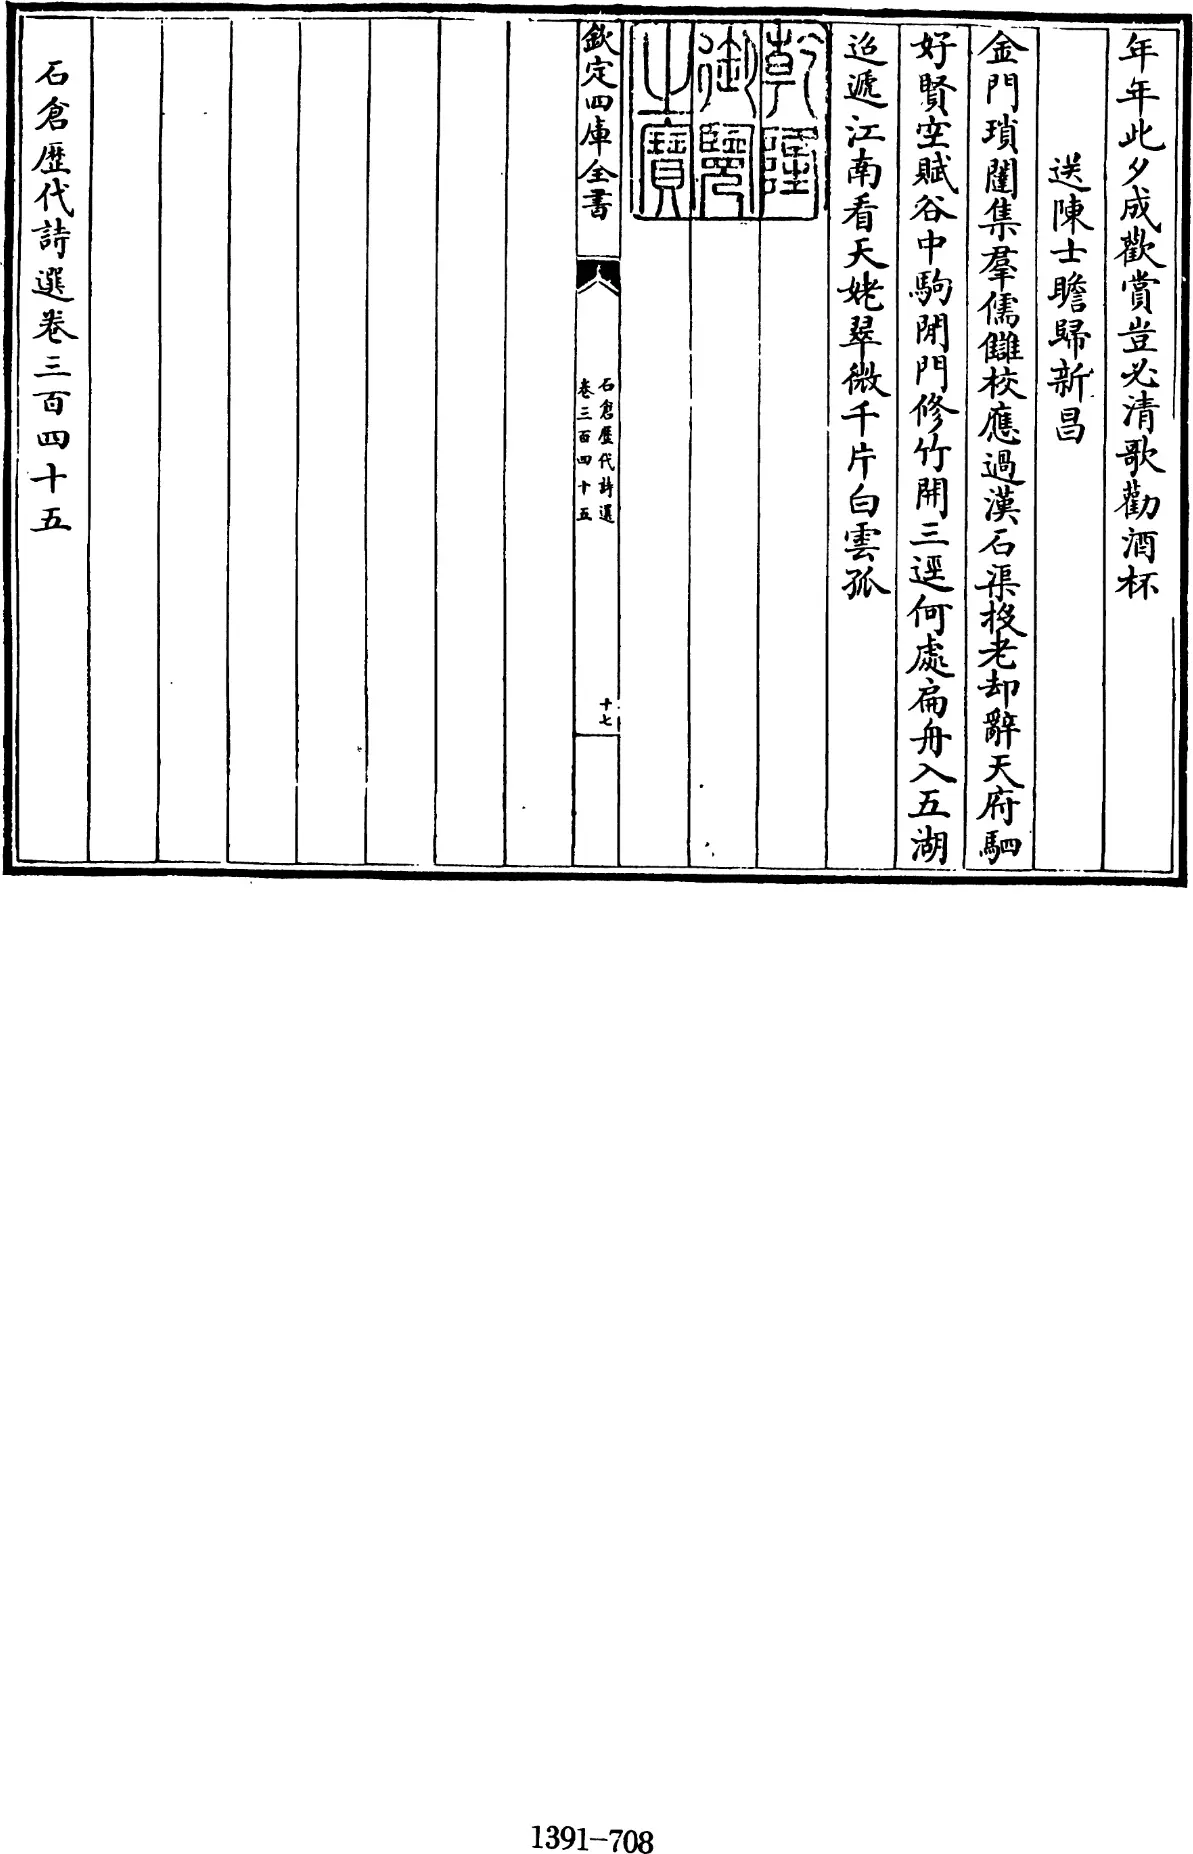 年年此夕成歡賞豈必清歌勸酒杯
送陳士瞻歸新昌
金門瑣闥集羣儒讎校應過漢石渠投老却辭天府駟
好賢空賦谷中駒閉門修竹開三逕何處扁舟入五湖
迢遞江南看天姥翠微千片白雲孤
乾隆
御覽
之寶
欽定四庫全書
石倉歷代詩選
卷三百四十五
十七
石倉歷代詩選卷三百四十五
1391-708